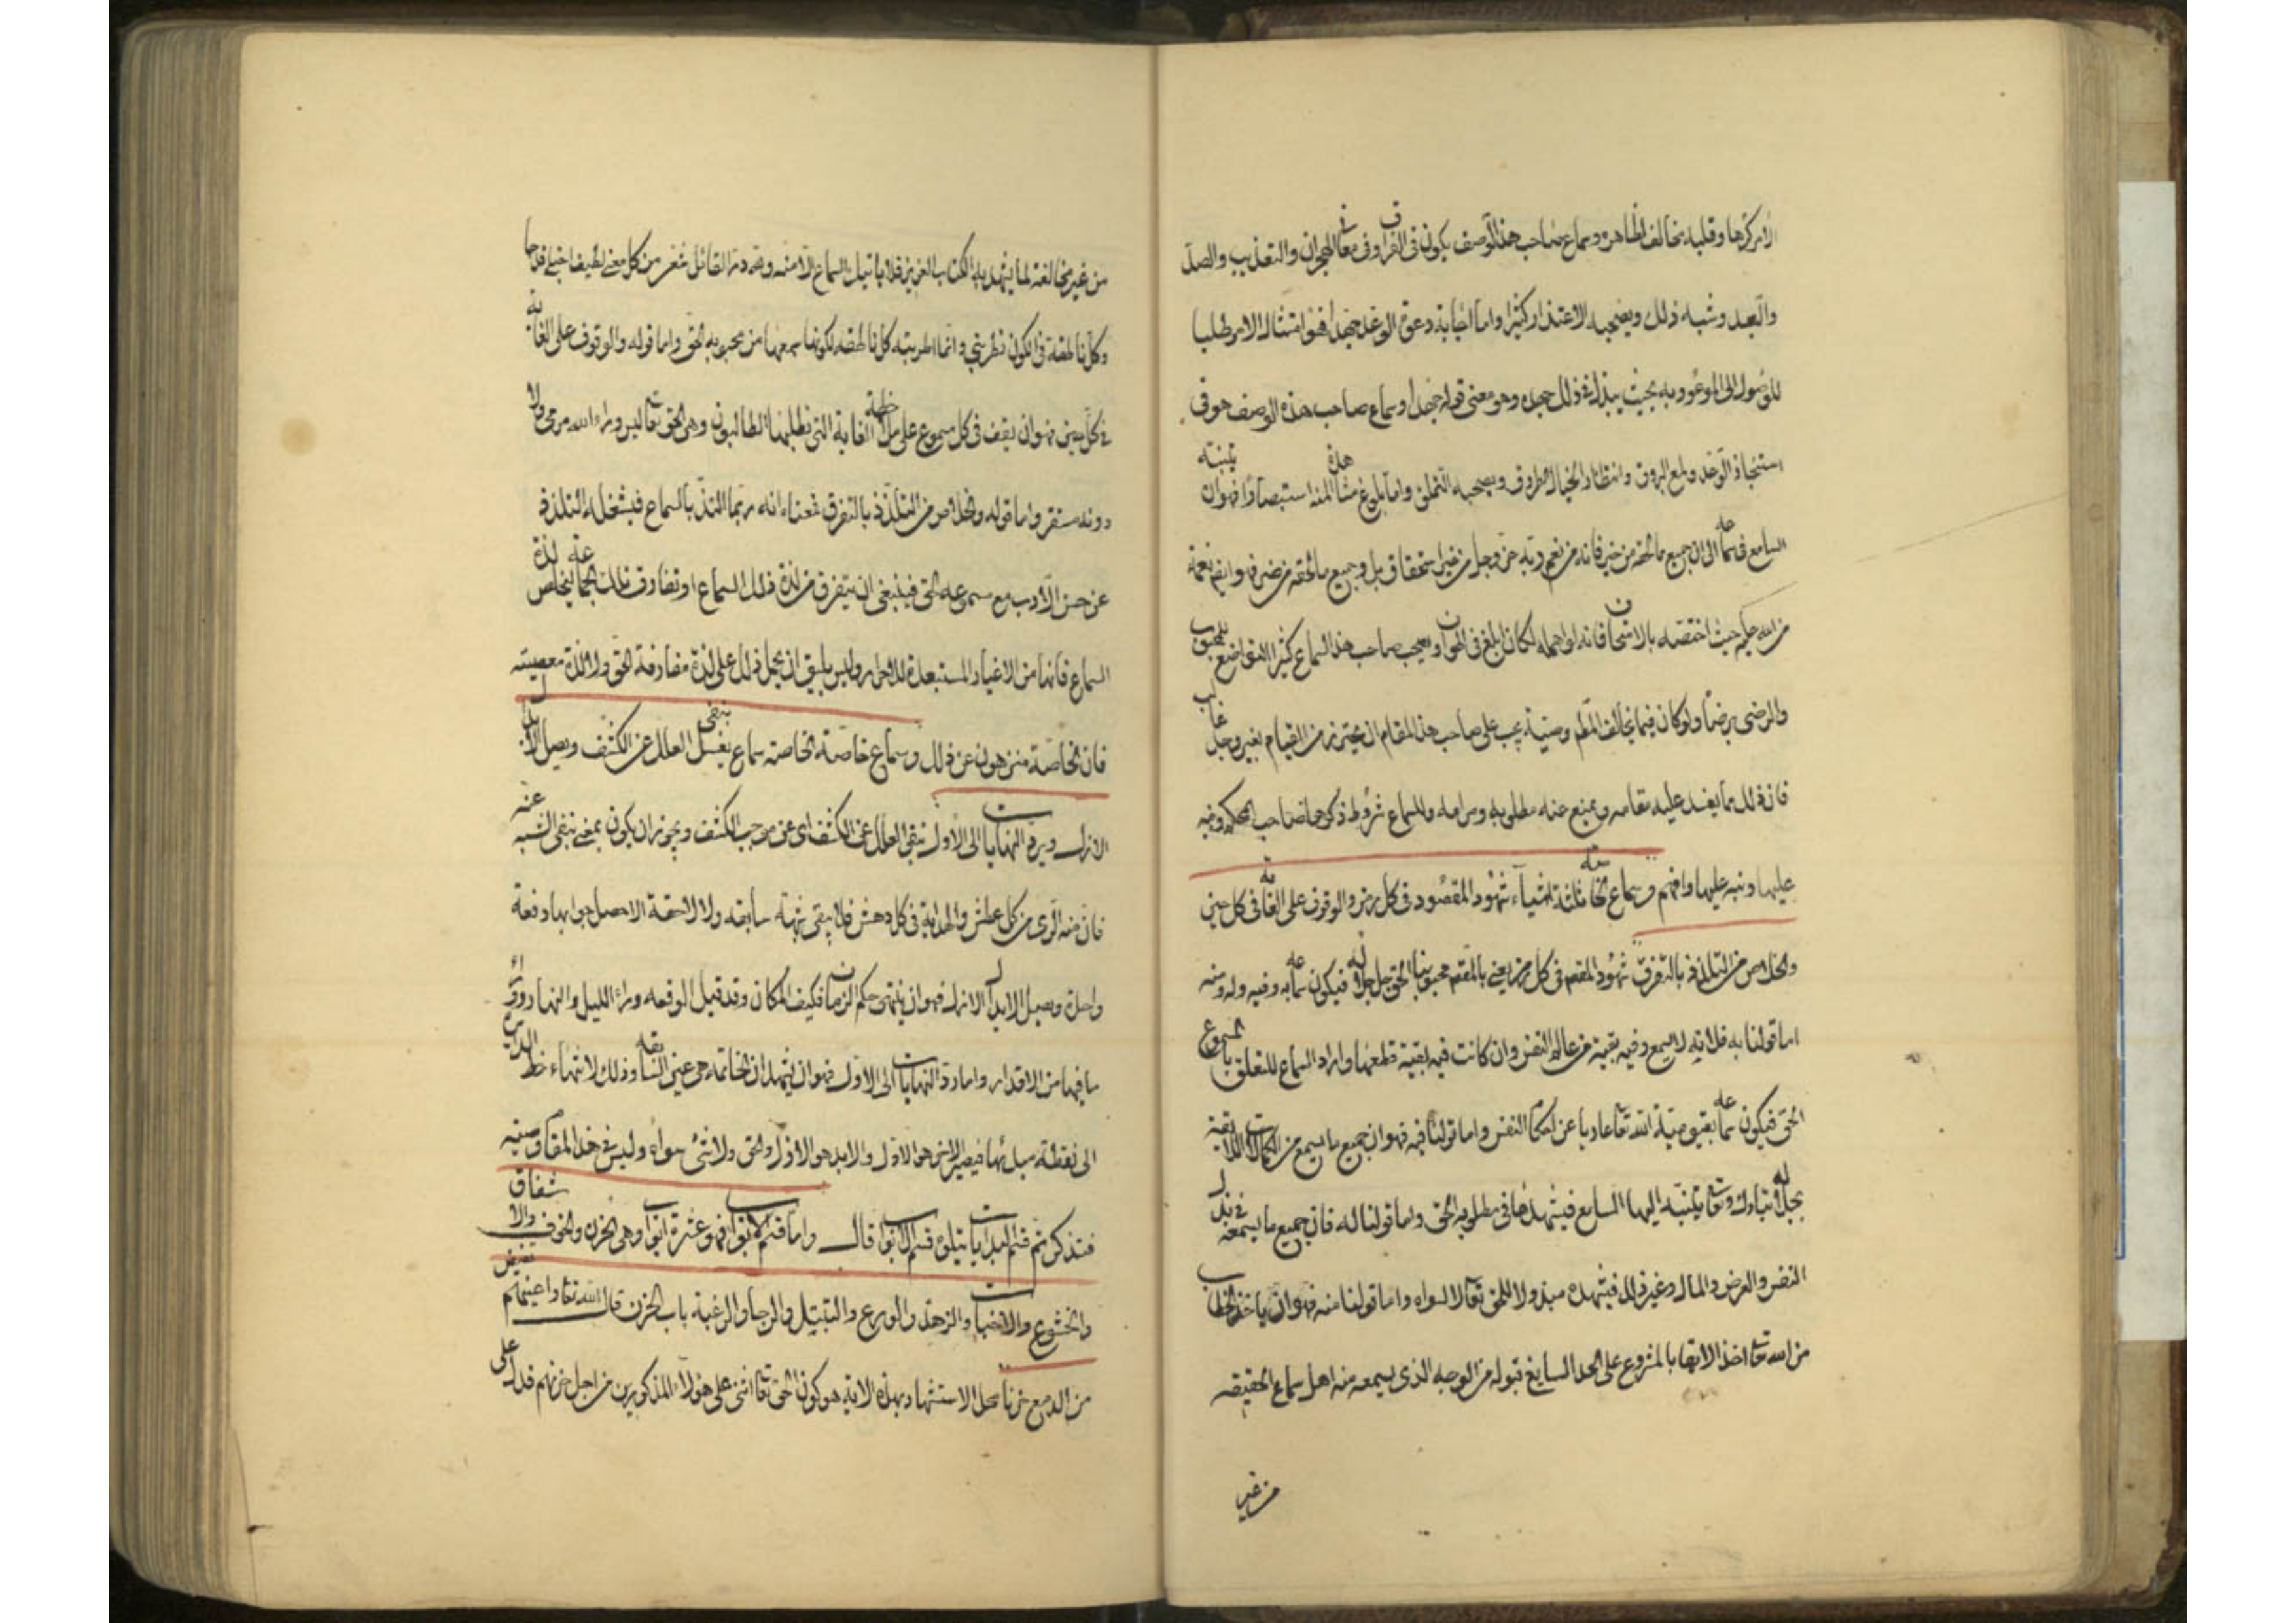 الامر كرها وقلبه يخالف الظاهر وسماع صاحب هذا الوصف يكون في الفراق وفي معاني الهجران والتعذيب والصد
والبعد وشبه ذلك ويصحبه الاعتذار كثيرا واما اجابة دعوة الوعد جهدا فهو امتثال الامر طلبا
للوصول الى الموعود به بحيث يبذل في ذلك جهده وهو معنى قوله جهدا وسماع صاحب هذه الوصف هو في
استنجاز الوعد ولمع البروق وانتظار الخيال الطروق ويصحبه التملق واما بلوغ مشاهدة المنة استبصارا فهو ان يتنبه
السامع في سماعه الى ان جميع ما لحقه من خير فانه من نعم ربه عز وجل من غير استحقاق بل وجميع ما لحقه من ضر فهو ايضا نعمة
من الله عليه حيث اختصه بالامتحان فانه لو اهمله لكان ابلغ في الهوان ويصحب صاحب هذا السماع كثيرا التواضع للمحبوب
والرضى برضاه ولو كان فيما يخالف المطلوب وصية يجب على صاحب هذا المقام ان يحترز من القيام بغير وجد غالب
فان ذلك مما يفسد عليه مقامه ويمنع عنه مطلوبه ومرامه وللسماع شروط ذكرها صاحب المحكم ونبه
عليها ونبه عليها وافهم وسماع الخاصة ثلثة اشياء شهود المقصود في كل رمز والوقوف على الغاية في كل حين
والخلاص من التلذذ بالتفرق شهود المقصود في كل رمز يعني بالمقصود محبوبنا الحق جل جلاله فيكون سماعه به وفيه وله ومنه
اما قولنا به فلانه لا يسمع وفيه بقية من عالم النفس وان كانت فيه بقية قطعها واراد السماع للتعلق بالمسموع
الحق فيكون سماعه بقيومية الله تعا عاريا عن احكام النفس واما قولنا فيه فهو ان جميع ما يسمع من الكمالات اللائقة
بجلاله تبارك وتعا يتنبه اليها السامع فيشهدها في مطلوبه الحق واما قولنا له فان جميع ما يسمعه في بذل
النفس والعرض والمال وغير ذلك فيشهده مبذولا للحق تعالى لا لسواه واما قولنا منه فهو ان ياخذ الخطاب
من الله تعا اخذ الاتهابا لمشروع على الحد السايغ قبوله من الوجه الذي يسمعه منه اهل سماع الحقيقه
من غير
من غير مخالفة لما يشهد به الكتاب العزيز فلا ياتيك السماع الا منه ولله در القائل شعر من كل معنى لطيف اجتلي قدحا
وكل ناطقة في الكون تطربني وانما اطربته كل ناطقه لكونها سمعها من محبوبه الحق واما قوله والوقوف على الغاية
في كل حين فهو ان يقف في كل مسموع على ملاحظة الغاية التي يطلبها الطالبون وهي الحق تعا ليس وراء الله مرمى ولا
دونه مستقر واما قوله والخلاص من التلذذ بالتفرق فمعناه انه ربما التذ بالسماع فيشغله التلذذ
عن حسن الادب مع مسموعه الحق فينبغي ان يتفرق من لذة ذلك السماع او تفارق تلك الجماعة ليخلص لذة
السماع فانها من الاغيار المستبعدة للاحرار وليس يليق ان يحمل ذلك على لذة مفارقة الحق ولا لذة معصيته
فان الخاصة منزهون عن ذلك وسماع خاصة الخاصة سماع يغسل ينفي العلل عن الكشف ويصل الابد الى
الازل ويرد النهايات الى الاول نفي العلل عن الكشف اي عن موجب الكشف ويجوز ان يكون بمعنى نفي الشبه عنه
فان منه الري من كل عطش والهداية في كل دهش فلا يبقى شبهة سابقه ولا لاحقة الا حصل جوابها دفعة
واحدة ويصل الابد الى الازل فهو ان ينتهي حكم الزمان فكيف المكان وقد قيل الوقعه وراء الليل والنهار ووراء
ما فيها من الاقدار واما رد النهايات الى الاول فهو ان يشهد ان الخاتمة هي عين السابقه وذلك لانتهاء خط الدائرة
الى نقطة مبدئها فيصير الاخر هو الاول والابد هو الازل والحق ولا شئ سواه وليس في هذا المقام وصية
فتذكر تم قسم البدايات يتلوه قسم الابواب قال واما قسم الابواب فهو عشرة ابواب وهي الحزن والخوف والاشفاق
والخشوع والاخبات والزهد والورع والتبتل والرجا والرغبة باب الحزن قال الله تعا واعينهم تفيض
من الدمع حزنا محل الاستشهاد بهذه الاية هو كون الحق تعا اثنى على هؤلاء المذكورين من اجل حزنهم فدل على